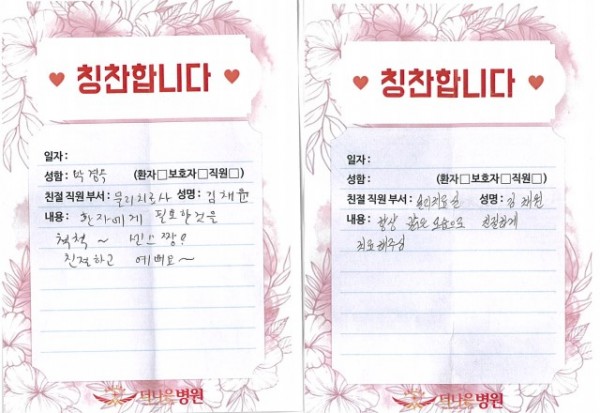 칭찬합니다
일자:
성함: 박경수 (환자□보호자□직원□)
친절 직원 부서: 물리치료사 성명: 김채윤
내용: 환자에게 필요한것을
척척~ 센스짱?
친절하고 예뻐요~
더나은병원
칭찬합니다
일자:
성함: (환자□보호자□직원□)
친절 직원 부서: 물리치료실 성명: 김채원
내용: 항상 밝은 모습으로 친절하게
치료해주심
더나은병원